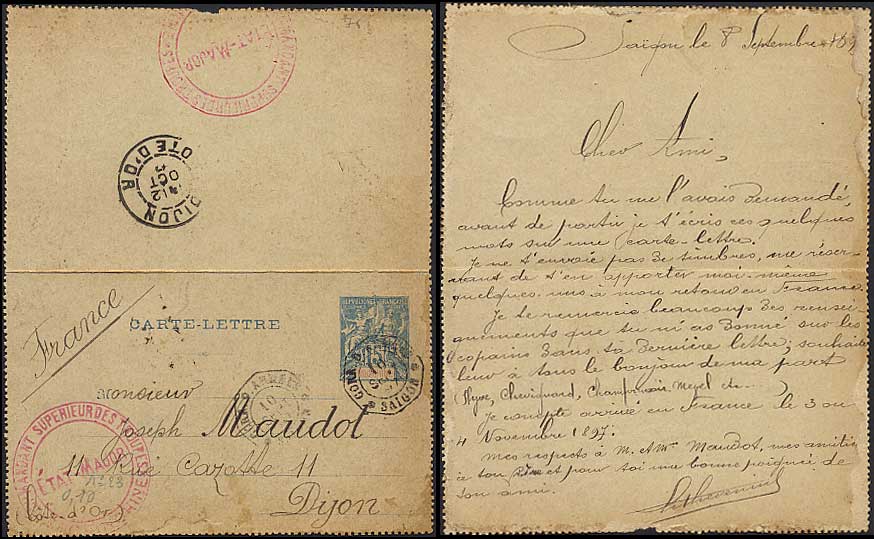 ÉTAT-MAJOR
DIJON
12
OCT
COTE D'OR
France
CARTE-LETTRE
15
SAIGON
Monsieur
Joseph Maudot
11 Rue Cazotte 11
Dijon
(Côte d'Or)
ÉTAT MAJOR
Saïgon le 8 Septembre
Cher Ami,
Comme tu me l'avais demandé,
avant de partir je t'écris ces quelques
mots sur une carte-lettre.
Je ne t'envoie pas de timbres, me réser-
vant de t'en apporter moi-même
quelques-uns à mon retour en France.
Je te remercie beaucoup des rensei-
gnements que tu m'as donné sur les
copains dans ta dernière lettre; souhaite
leur à tous le bonjour de ma part
Je compte arrivé en France le 3 ou
4 Novembre 1897.
Mes respects à M. et Mme Maudot, mes amitiés
à ton et pour toi une bonne poignée de
ton ami.